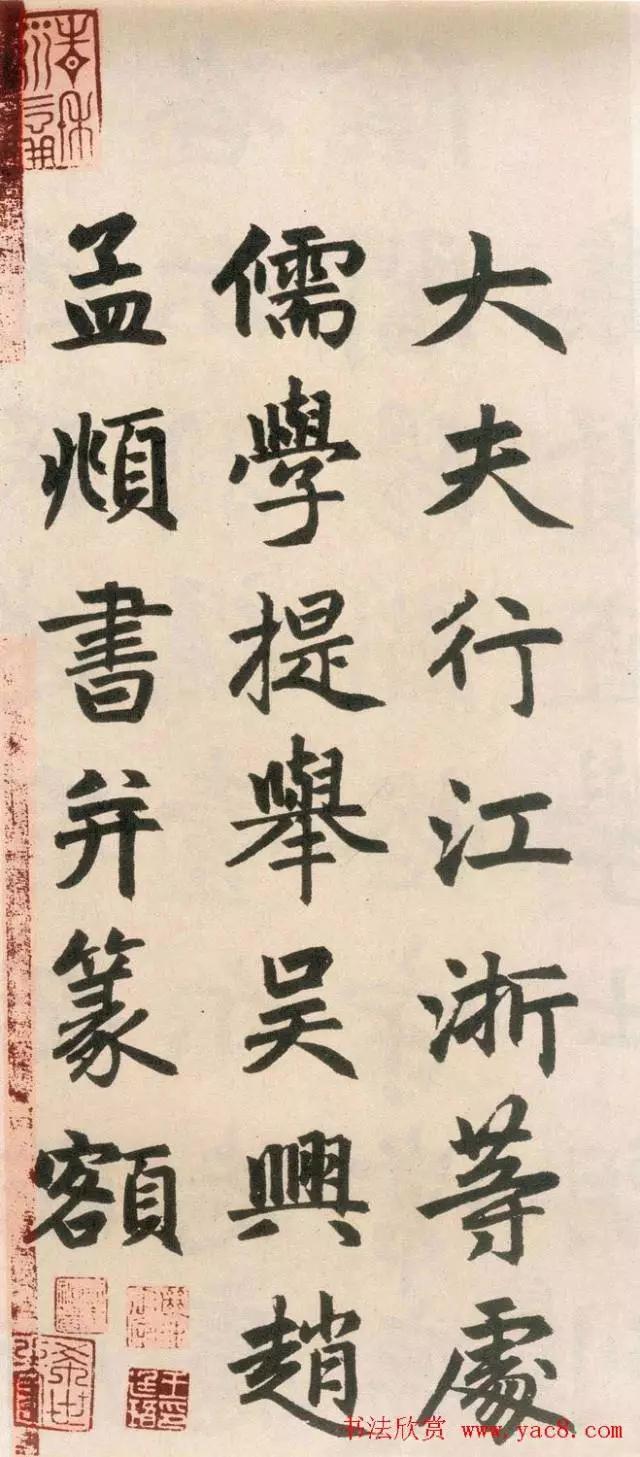 大夫行江浙等處
儒學提舉吳興趙
孟頫書并篆額
书法欣赏 www.yac8.com